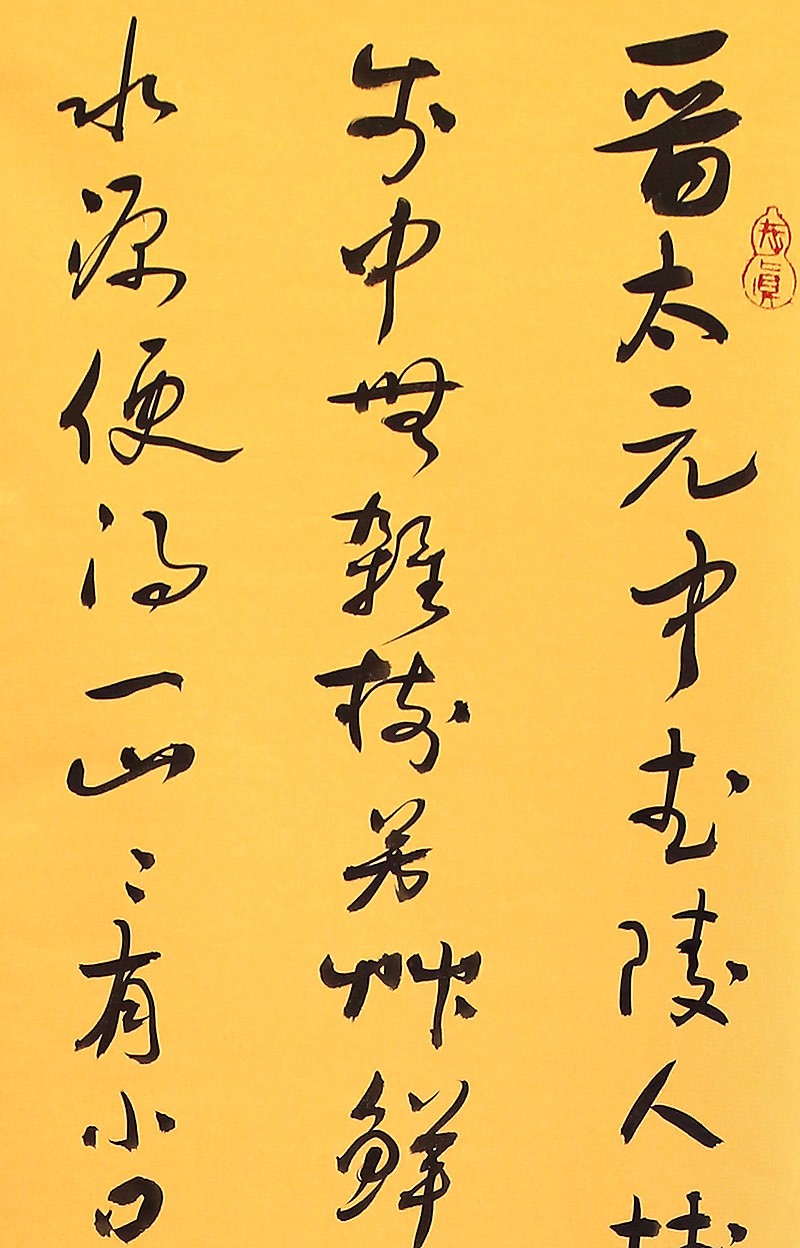 晉太元中武陵人
步中無雜樹芳艸鮮
水源便得一山〻有小口